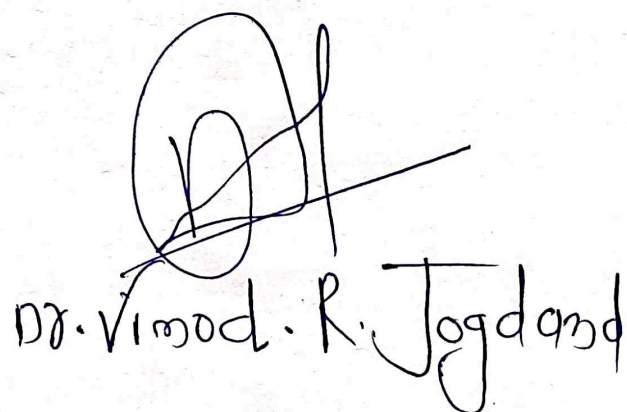 Dr. Vinod. R. Jogdand